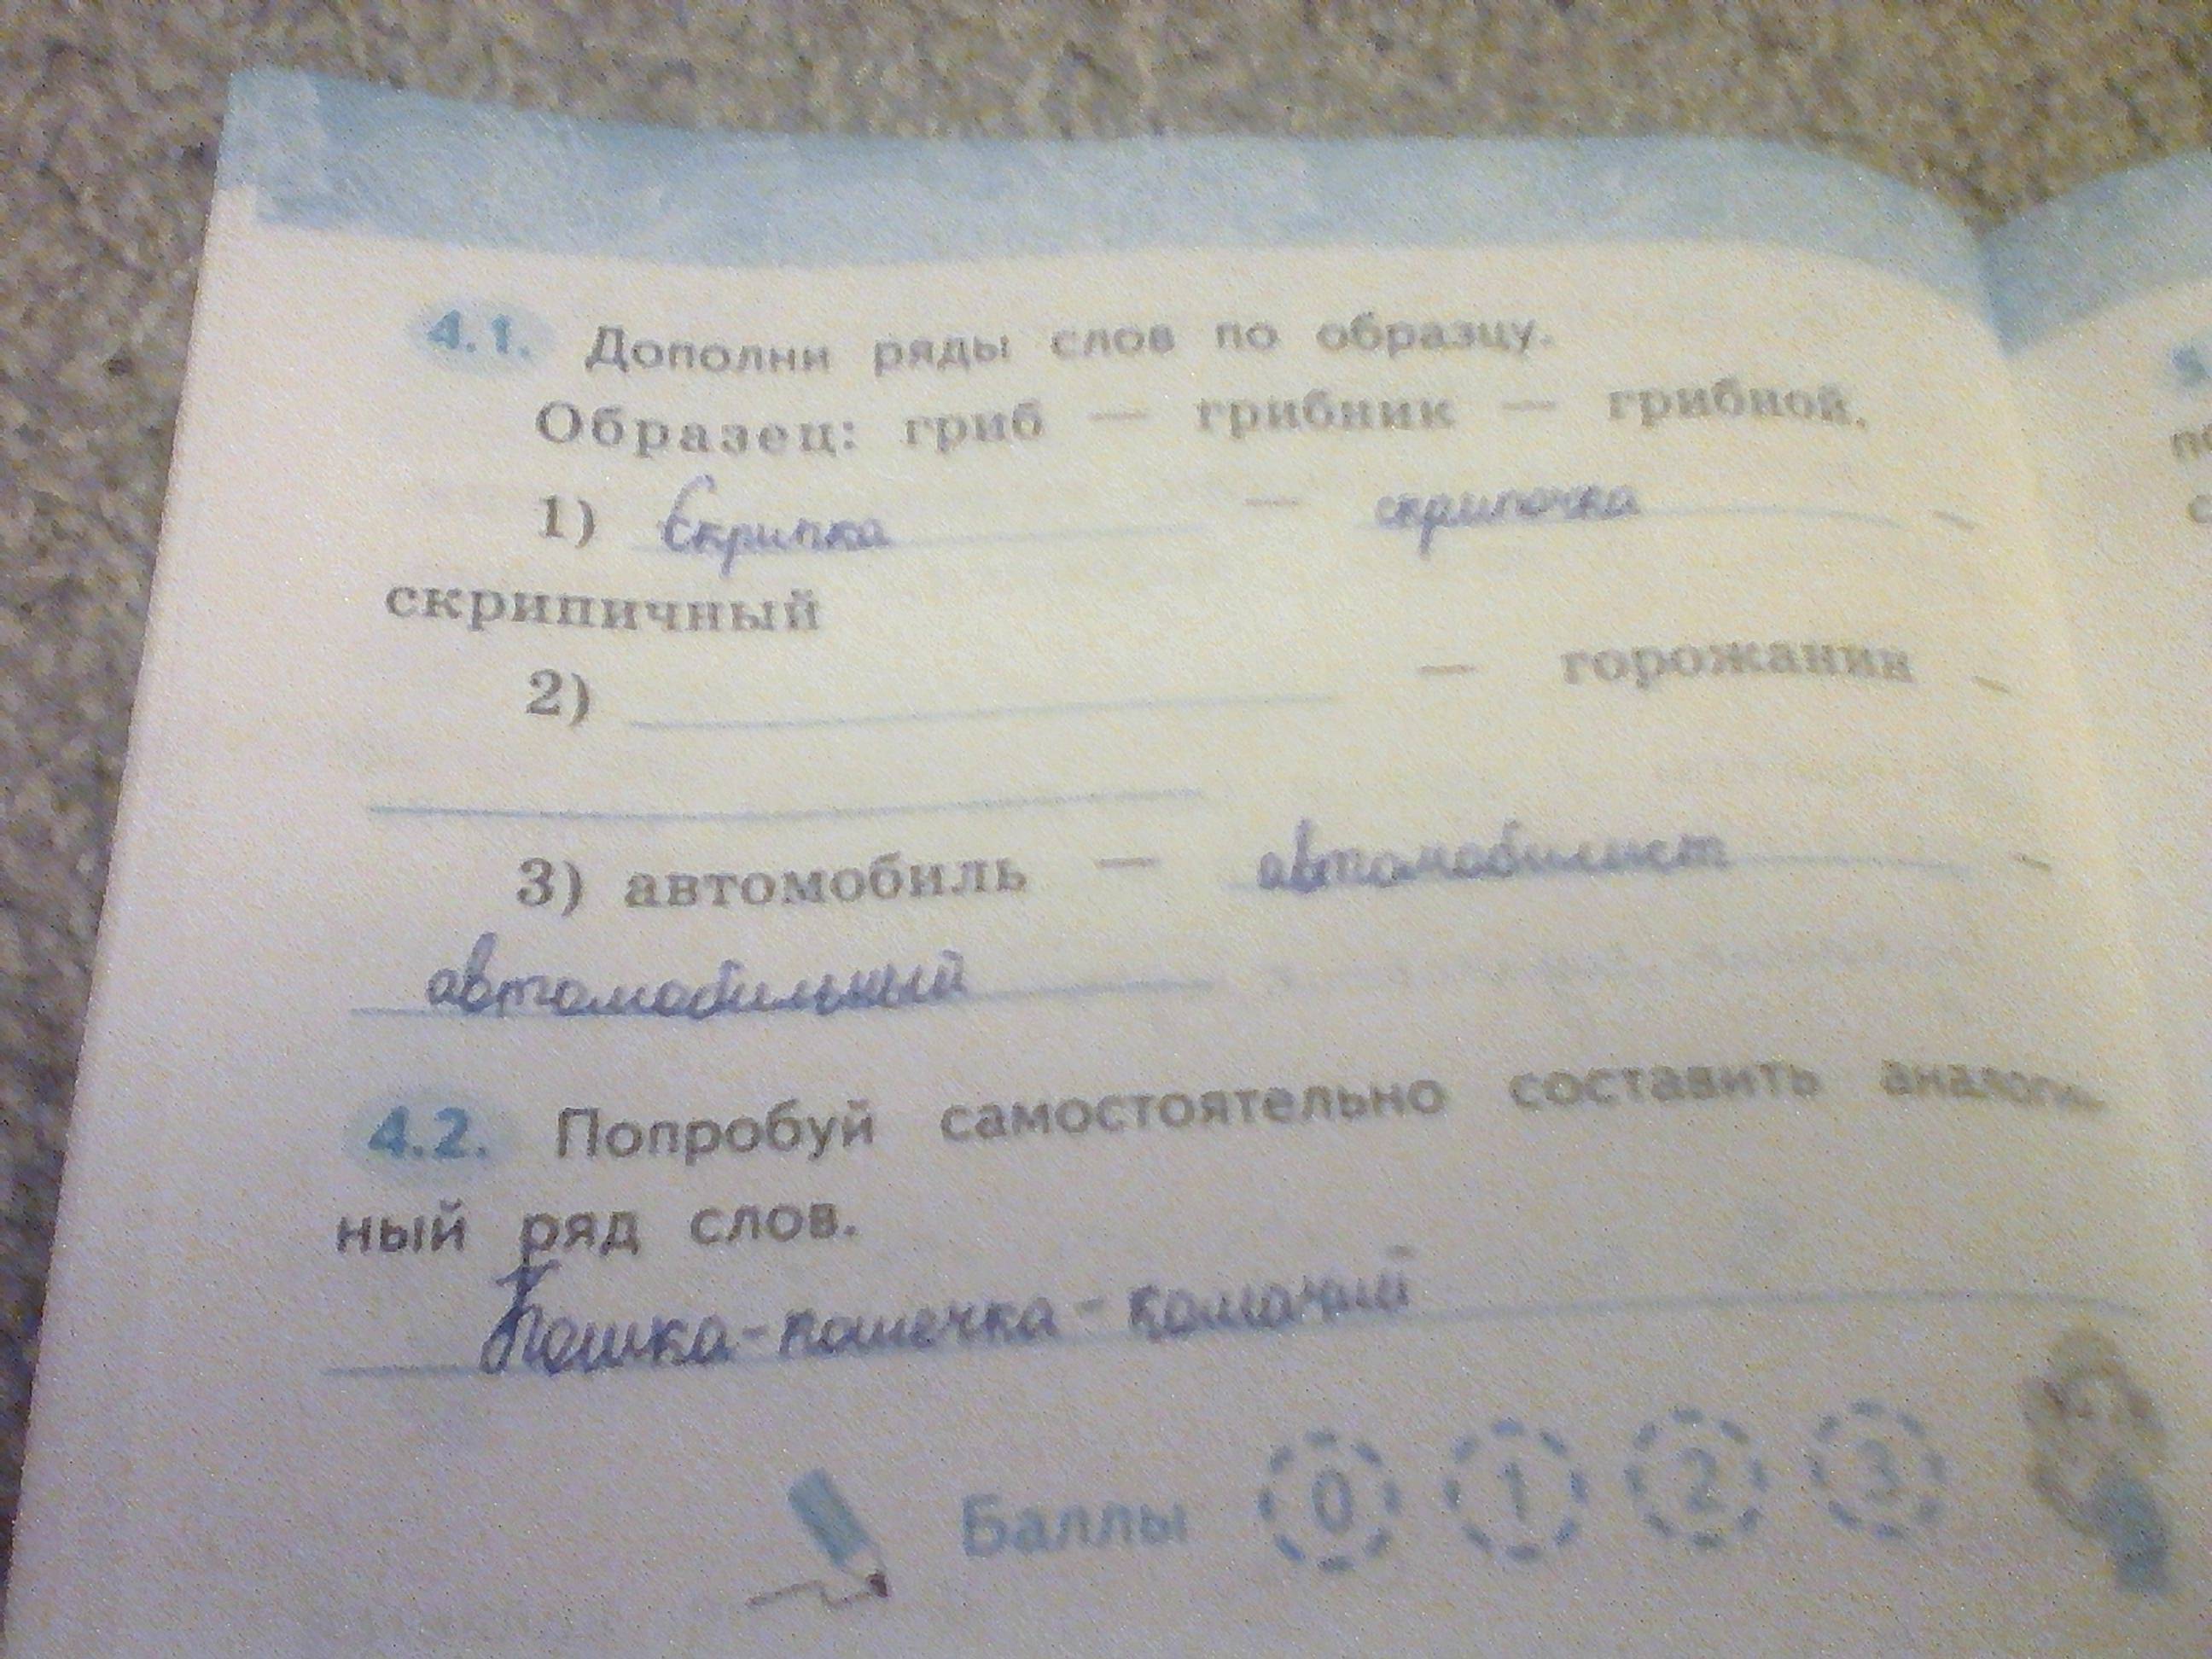 4.1. Дополни ряды слов по образцу.
Образец: гриб — грибник — грибной.
1) Скрипка — скрипочка –
скрипичный
2) — горожанин –
3) автомобиль — автомобилист –
автомобильный
4.2. Попробуй самостоятельно составить аналогич-
ный ряд слов.
Кошка-кошечка-
Баллы 0 1 2 3